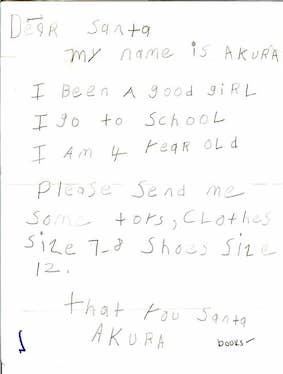 Dear Santa
my name is AKURA
I Been A good giRL
I go to School
I Am 4 Year old
Please Send me
Some toys, Clothes
Size 7-8 Shoes Size
12.
that You Santa
AKURA
books